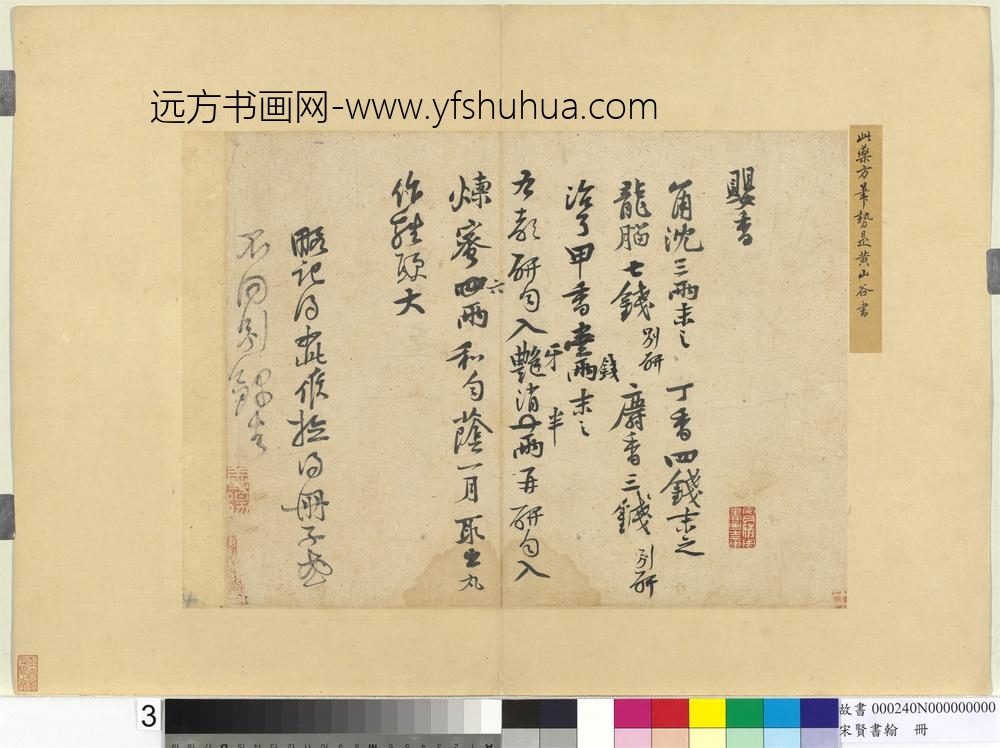 远方书画网-www.yfshuhua.com
此藥方筆勢是黃山谷書
嬰香
角沈三兩末之 丁香四錢末之
龍腦七錢別研 麝香三錢別研
治了甲香壹兩錢末之
右都研勻入豔消半兩再研勻入
牙半
煉蜜四兩和勻蔭一月取出丸
六
作雞頭大
略記得此候檢得冊子或
不同別錄去
3
故書 000240N000000000
宋賢書翰 冊